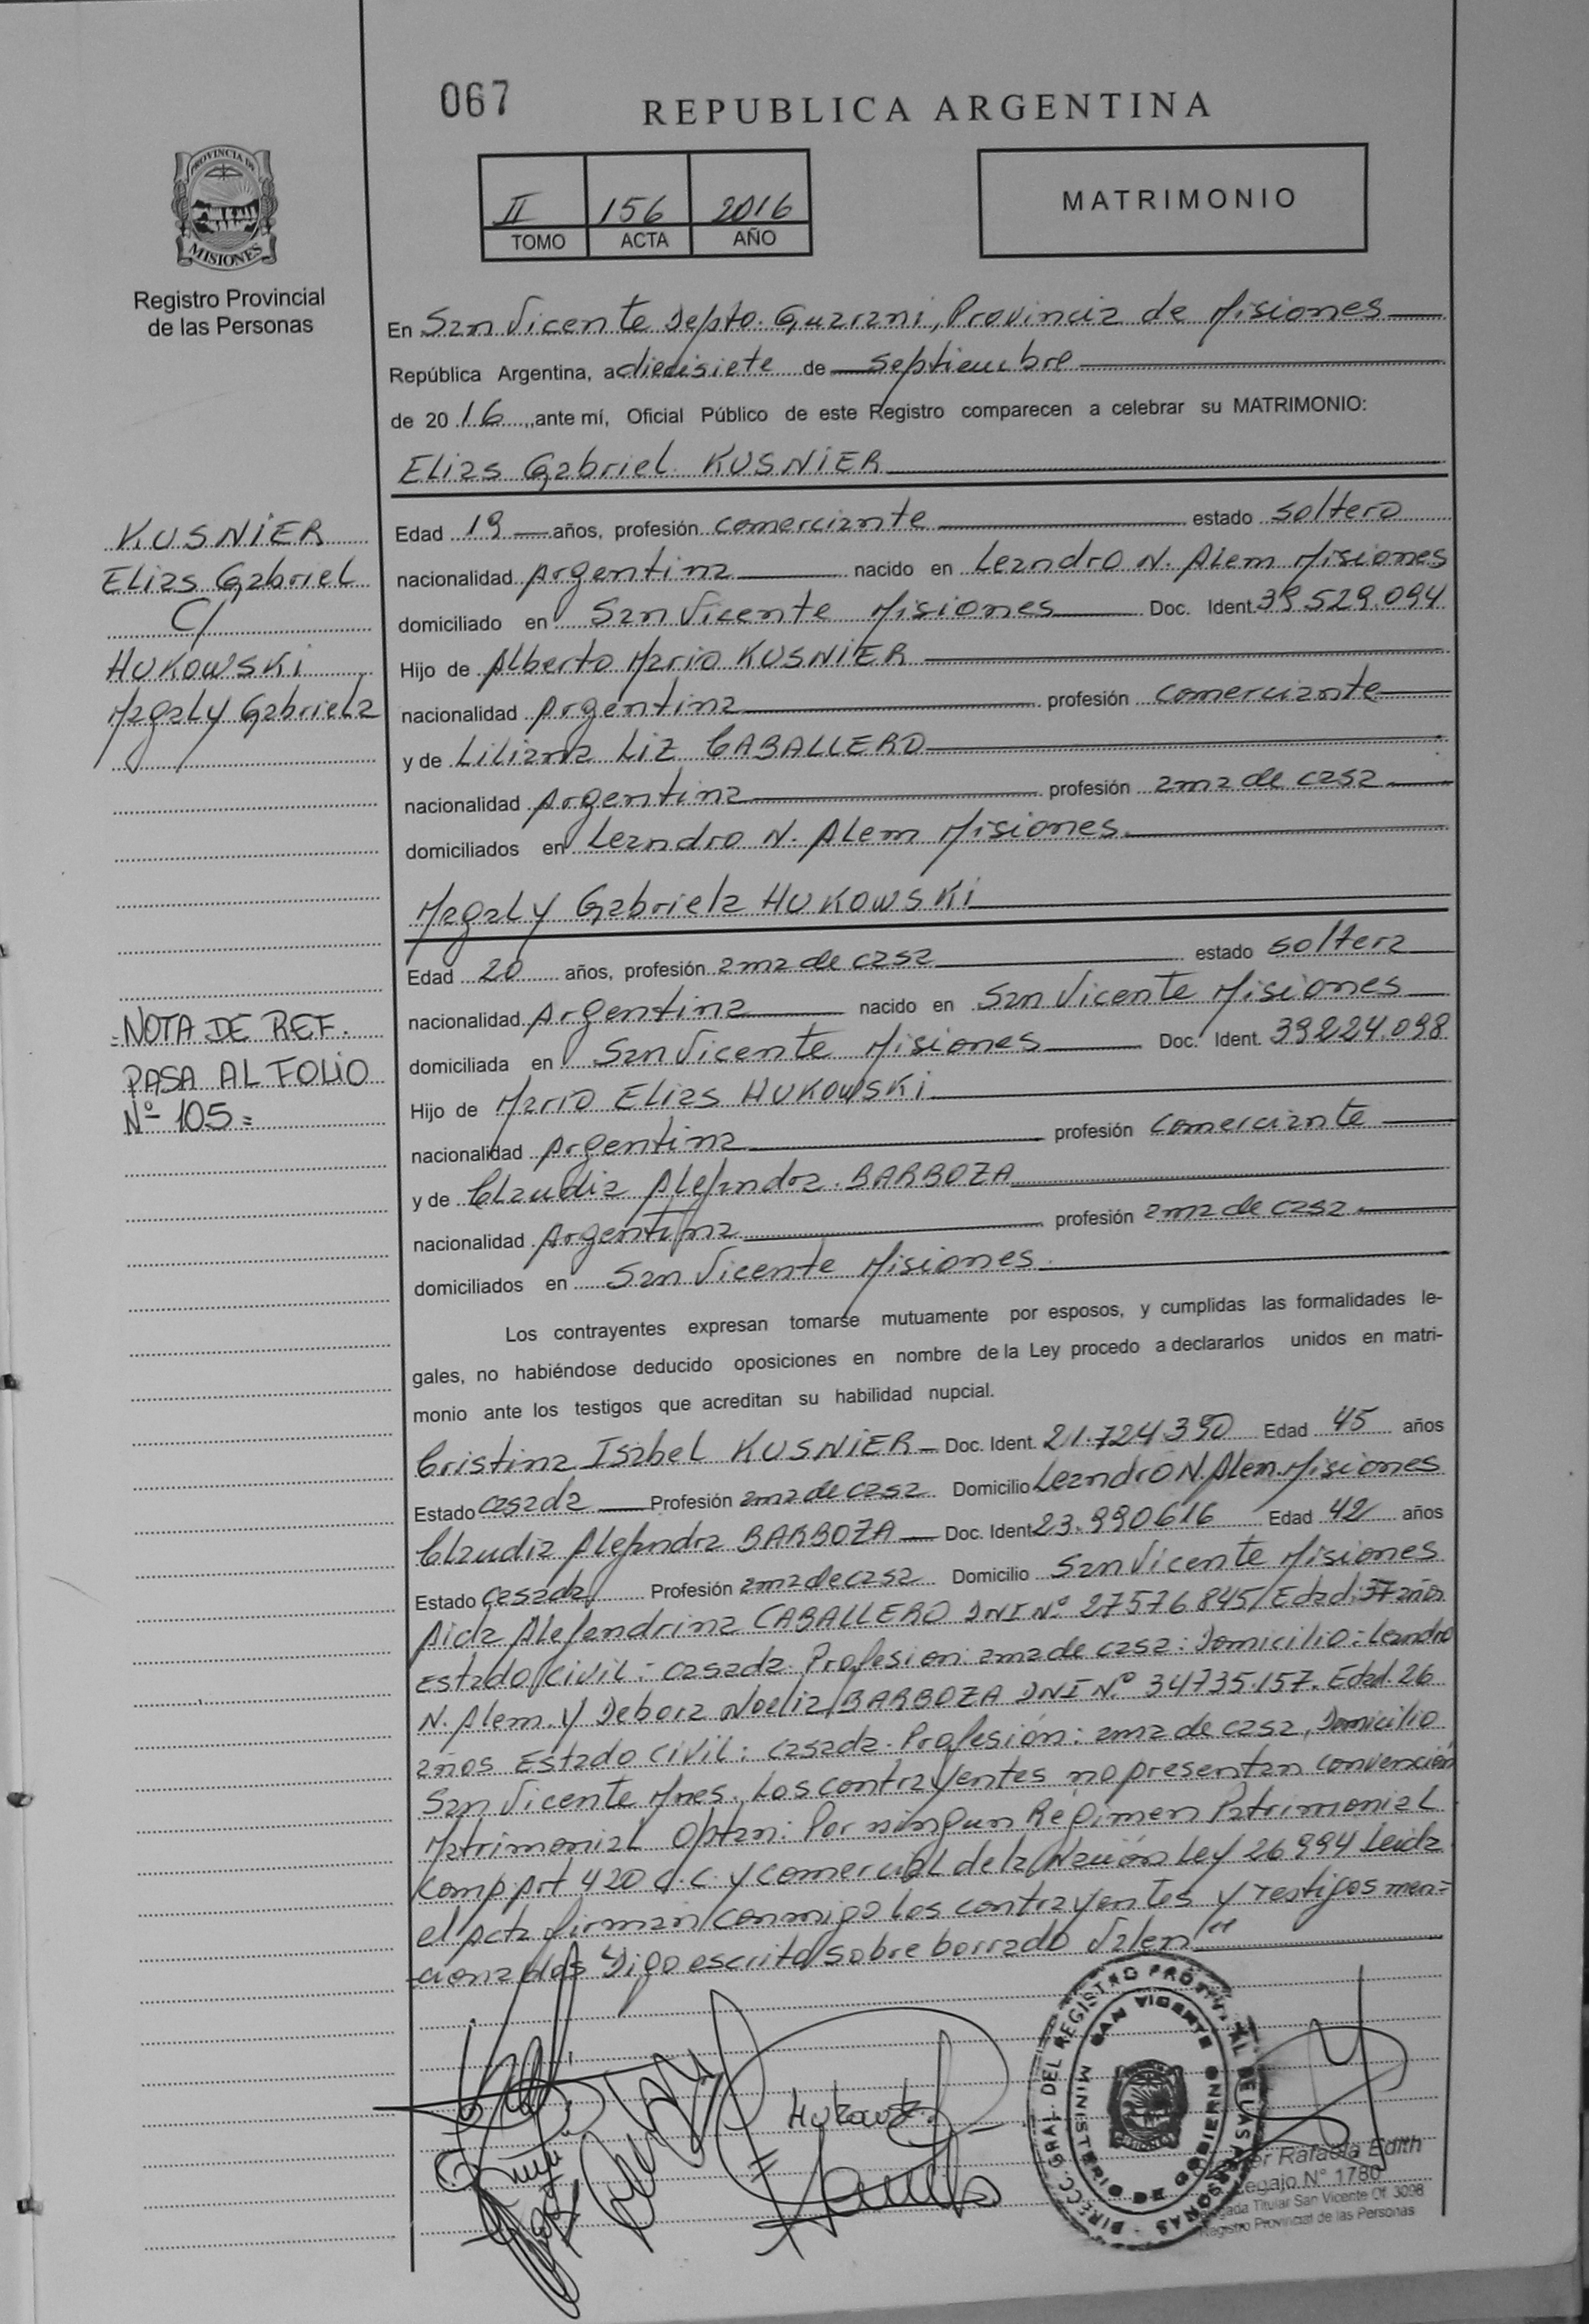 067
REPUBLICA ARGENTINA
PROVINCIA DE
MISIONES
Registro Provincial
de las Personas
II 156 2016
TOMO ACTA AÑO
MATRIMONIO
En San Vicente Depto. Guarani, Provincia de Misiones
República Argentina, a diecisiete de septiembre
de 2016, ante mí, Oficial Público de este Registro comparecen a celebrar su MATRIMONIO:
Elias Gabriel KUSNIER
KUSNIER
Elias Gabriel
C/
HUKOWSKI
Magaly Gabriela
Edad 19 años, profesión comerciante estado soltero
nacionalidad Argentina nacido en Leandro N. Alem Misiones
domiciliado en San Vicente Misiones Doc. Ident. 39.529.094
Hijo de Alberto Mario KUSNIER
nacionalidad Argentina profesión comerciante
y de Liliana Liz CABALLERO
nacionalidad Argentina profesión ama de casa
domiciliados en Leandro N. Alem Misiones
Magaly Gabriela HUKOWSKI
Edad 20 años, profesión ama de casa estado soltera
nacionalidad Argentina nacido en San Vicente Misiones
domiciliada en San Vicente Misiones Doc. Ident. 39224.098
Hijo de Mario Elias HUKOWSKI
nacionalidad Argentina profesión comerciante
y de Claudia Alejandra BARBOZA
nacionalidad Argentina profesión ama de casa
domiciliados en San Vicente Misiones
=NOTA DE REF.
PASA AL FOLIO
Nº 105=
Los contrayentes expresan tomarse mutuamente por esposos, y cumplidas las formalidades le-
gales, no habiéndose deducido oposiciones en nombre de la Ley procedo a declararlos unidos en matri-
monio ante los testigos que acreditan su habilidad nupcial.
Cristina Isabel KUSNIER Doc. Ident. 21.724.390 Edad 45 años
Estado casada Profesión ama de casa Domicilio Leandro N. Alem. Misiones
Claudia Alejandra BARBOZA Doc. Ident. 23.990616 Edad 42 años
Estado casada Profesión ama de casa Domicilio San Vicente Misiones
Aida Alejandrina CABALLERO DNI Nº 27576.845/Edad: 37 años
Estado Civil: casada. Profesion: ama de casa: Domicilio: Leandro
N. Alem. Y Debora Noelia BARBOZA DNI Nº 34735.157. Edad. 26
años Estado Civil: casada. Profesión: ama de casa, Domicilio
San Vicente Mnes. Los contrayentes no presentan convención
Matrimonial Optan: Por ningun Régimen Patrimonial
Comp. Art 420 C.C. y comercial de la Nación Ley 26994 Leida
el Acta firman conmigo los contrayentes y testigos men=
cionados "Digo escrito sobre borrado Valen"
Hukowski
DIRECC. GRAL. DEL REGISTRO PROVINCIAL DE LAS PERSONAS
SAN VICENTE
MINISTERIO DE GOBIERNO
Rafaela Edith
Legajo N° 1780
Titular San Vicente Of. 3098
Registro Provincial de las Personas